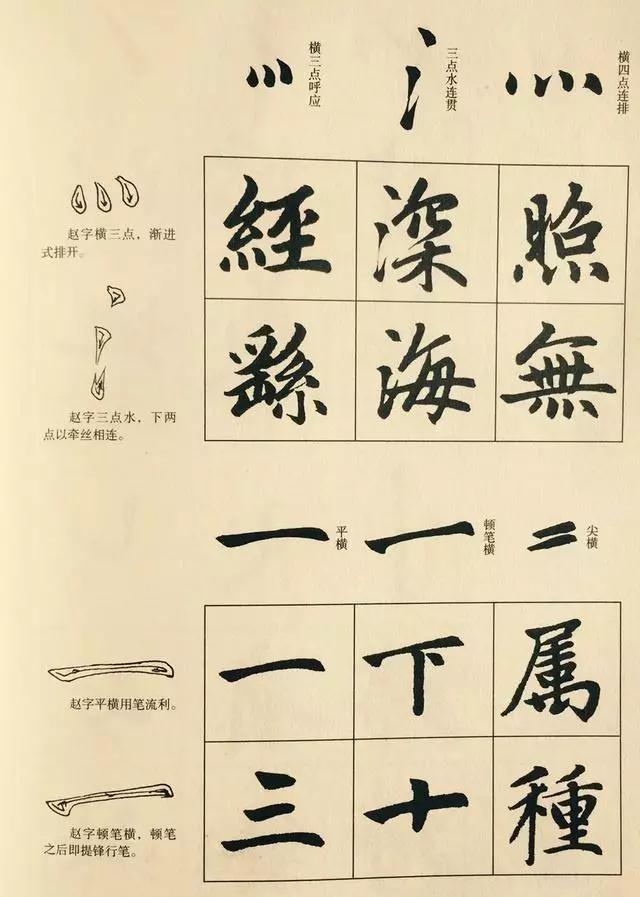 横三点呼应
三点水连贯
横四点连排
赵字横三点，渐进
式排开。
赵字三点水，下两
点以牵丝相连。
經 深 照
繇 海 無
平横
顿笔横
尖横
赵字平横用笔流利。
赵字顿笔横，顿笔
之后即提锋行笔。
一 下 属
三 十 種